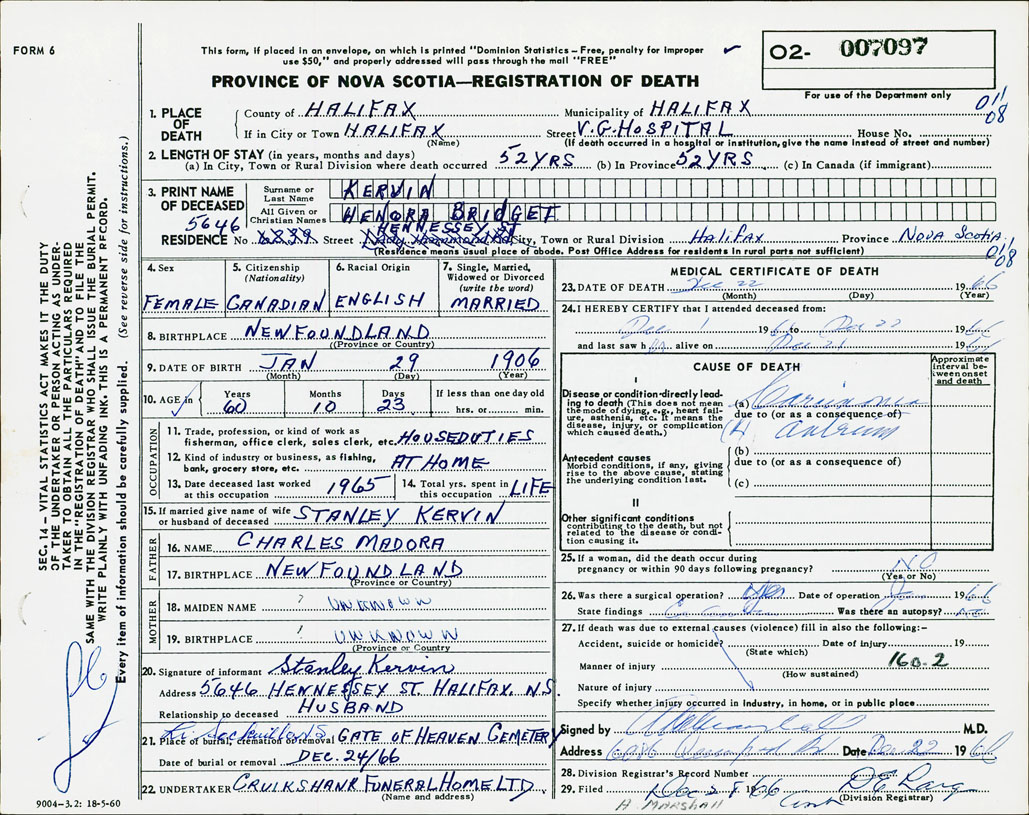 FORM 6
This form, if placed in an envelope, on which is printed "Dominion Statistics – Free, penalty for improper
use $50," and properly addressed will pass through the mail "FREE"
✓
O2- 007097
For use of the Department only
PROVINCE OF NOVA SCOTIA—REGISTRATION OF DEATH
011
08
1. PLACE OF DEATH
County of HALIFAX Municipality of HALIFAX
If in City or Town HALIFAX Street V.G. HOSPITAL House No.
(Name) (If death occurred in a hospital or institution, give the name instead of street and number)
2. LENGTH OF STAY (in years, months and days)
(a) In City, Town or Rural Division where death occurred 52 YRS (b) In Province 52 YRS (c) In Canada (if immigrant)
3. PRINT NAME OF DECEASED
Surname or Last Name KERVIN
All Given or Christian Names HENORA BRIDGET
5646 HENNESSEY ST
RESIDENCE No 6839 Street City, Town or Rural Division HALIFAX Province NOVA SCOTIA
(Residence means usual place of abode. Post Office Address for residents in rural parts not sufficient)
011
08
4. Sex FEMALE
5. Citizenship (Nationality) CANADIAN
6. Racial Origin ENGLISH
7. Single, Married, Widowed or Divorced (write the word) MARRIED
8. BIRTHPLACE NEWFOUNDLAND
(Province or Country)
9. DATE OF BIRTH JAN 29 1906
(Month) (Day) (Year)
10. AGE in Years 60 Months 10 Days 23 If less than one day old hrs. or min.
OCCUPATION
11. Trade, profession, or kind of work as
fisherman, office clerk, sales clerk, etc. HOUSEDUTIES
12. Kind of industry or business, as fishing,
bank, grocery store, etc. AT HOME
13. Date deceased last worked at this occupation 1965
14. Total yrs. spent in this occupation LIFE
15. If married give name of wife
or husband of deceased STANLEY KERVIN
FATHER
16. NAME CHARLES MADORA
17. BIRTHPLACE NEWFOUNDLAND
(Province or Country)
MOTHER
18. MAIDEN NAME ? UNKNOWN
19. BIRTHPLACE ? UNKNOWN
(Province or Country)
20. Signature of informant Stanley Kervin
Address 5646 HENNESSEY ST. HALIFAX. N.S.
Relationship to deceased HUSBAND
21. Place of burial, cremation or removal GATE OF HEAVEN CEMETERY
Date of burial or removal DEC. 24/66
22. UNDERTAKER CRUIKSHANK FUNERAL HOME LTD.
(Name and address)
MEDICAL CERTIFICATE OF DEATH
23. DATE OF DEATH Dec 22 1966
(Month) (Day) (Year)
24. I HEREBY CERTIFY that I attended deceased from:
Dec 1 196 to Dec 22 196
and last saw h alive on Dec 21 196
CAUSE OF DEATH
Approximate interval between onset and death
I
Disease or condition directly leading to death (This does not mean the mode of dying, e.g., heart failure, asthenia, etc. It means the disease, injury, or complication which caused death.)
(a) Carcinoma
due to (or as a consequence of)
(R) antrum
Antecedent causes
Morbid conditions, if any, giving rise to the above cause, stating the underlying condition last.
(b)
due to (or as a consequence of)
(c)
II
Other significant conditions
contributing to the death, but not related to the disease or condition causing it.
25. If a woman, did the death occur during
pregnancy or within 90 days following pregnancy? NO
(Yes or No)
26. Was there a surgical operation? Yes Date of operation 1966
State findings Was there an autopsy?
27. If death was due to external causes (violence) fill in also the following:–
Accident, suicide or homicide? Date of injury 19
(State which)
160.2
Manner of injury
(How sustained)
Nature of injury
Specify whether injury occurred in industry, in home, or in public place
Signed by M.D.
Address Date Dec 22 1966
28. Division Registrar's Record Number
29. Filed Dec 28 1966
(Division Registrar)
A. MARSHALL
SEC. 14 – VITAL STATISTICS ACT MAKES IT THE DUTY
OF THE UNDERTAKER OR PERSON ACTING AS UNDERTAKER TO OBTAIN ALL THE PARTICULARS REQUIRED
IN THE "REGISTRATION OF DEATH" AND TO FILE THE
SAME WITH THE DIVISION REGISTRAR WHO SHALL ISSUE THE BURIAL PERMIT.
WRITE PLAINLY WITH UNFADING INK. THIS IS A PERMANENT RECORD.
Every item of information should be carefully supplied. (See reverse side for instructions.)
9004-3.2: 18-5-60